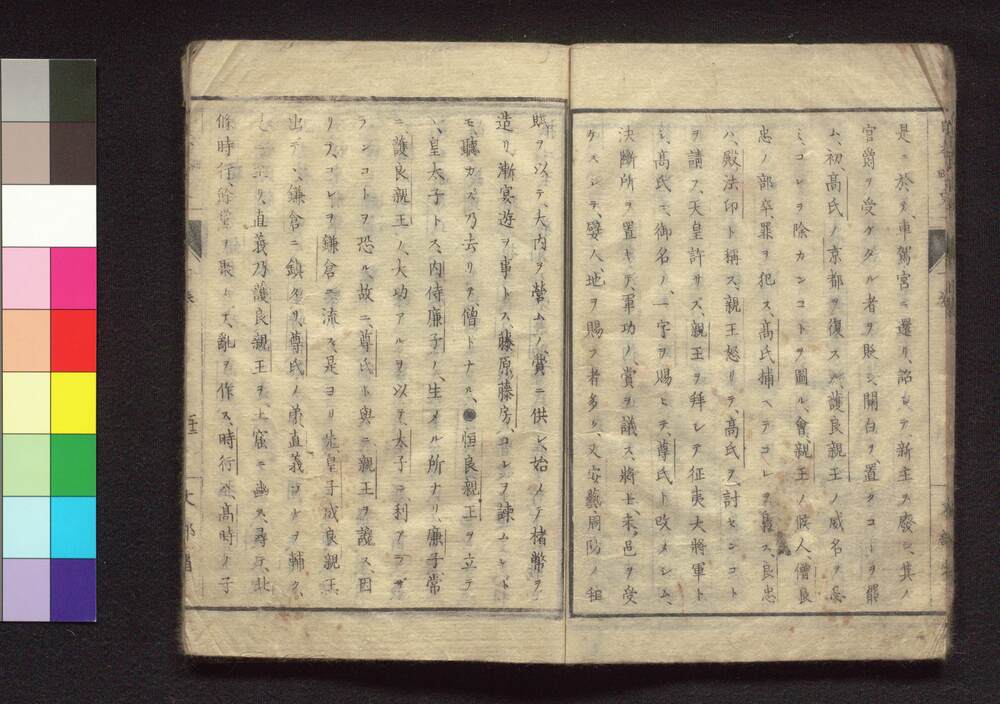 是ニ於テ、車駕宮ニ還リ、詔シテ、新主ヲ廢シ、其ノ
官爵ヲ受ケタル者ヲ貶シ、關白ヲ置クコトヲ罷
ム、初、髙氏ノ京都ヲ復スル、護良親王ノ威名ヲ忌
ミ、コレヲ除カンコトヲ圖ル、會、親王ノ候人、僧良
忠ノ部卒、罪ヲ犯ス、髙氏捕ヘテコレヲ梟ス、良忠
ハ、殿法印ト稱ス、親王怒リテ、髙氏ヲ討センコト
ヲ請フ、天皇許サズ、親王ヲ拜シテ征夷大將軍ト
シ、髙氏ニ、御名ノ一字ヲ賜ヒテ、尊氏ト改メシム、
決斷所ヲ置キテ、軍功ノ賞ヲ議ス、將士、未、邑ヲ受
ケズシテ、嬖人、地ヲ賜フ者多ク、又安藝周防ノ租
賦ヲ以テ、大内ヲ營ムノ費ニ供シ、始メテ楮幣ヲ
造リ、漸宴遊ヲ事トス、藤原藤房、コレヲ諫ムレド
モ、聽カズ、乃去リテ、僧トナル、恒良親王ヲ立テ
ヽ、皇太子トス、内侍廉子ノ、生メル所ナリ、廉子常
ニ、護良親王ノ、大功アルヲ以テ、太子ニ、利アラザ
ランコトヲ恐ル、故ニ、尊氏ト與ニ親王ヲ譖ス、因
リテ、コレヲ鎌倉ニ流ス、是ヨリ先、皇子成良親王、
出デヽ、鎌倉ニ鎭タリ、尊氏ノ弟直義コレヲ輔ク、
直義乃護良親王ヲ、土窟ニ幽ス、尋テ、北
條時行、餘黨ヲ聚メテ、亂ヲ作ス、時行ハ、髙時ノ子